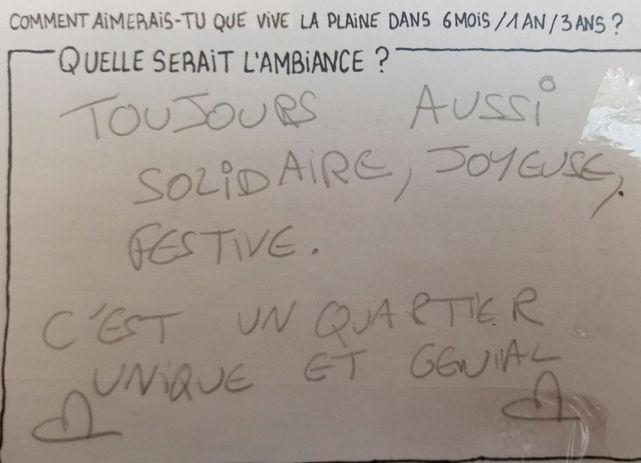 COMMENT AIMERAIS-TU QUE VIVE LA PLAINE DANS 6 MOIS / 1 AN / 3 ANS ?
QUELLE SERAIT L'AMBIANCE ?
TOUJOURS AUSSI
SOLIDAIRE, JOYEUSE,
FESTIVE.
C'EST UN QUARTIER
UNIQUE ET GENIAL